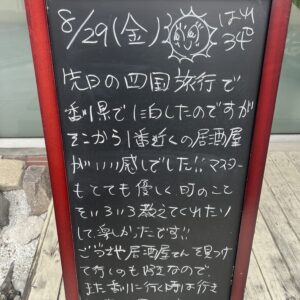 8/29(金) はれ
34℃
先日の四国旅行で
香川県で1泊したのですが
そこから1番近くの居酒屋
がいい感じでした!! マスター
もとても優しく町のこと
をいろいろ教えてくれたり
して楽しかったです!!
ご当地居酒屋さんを見つけ
て行くのも好きなので
また香川に行く時は行き